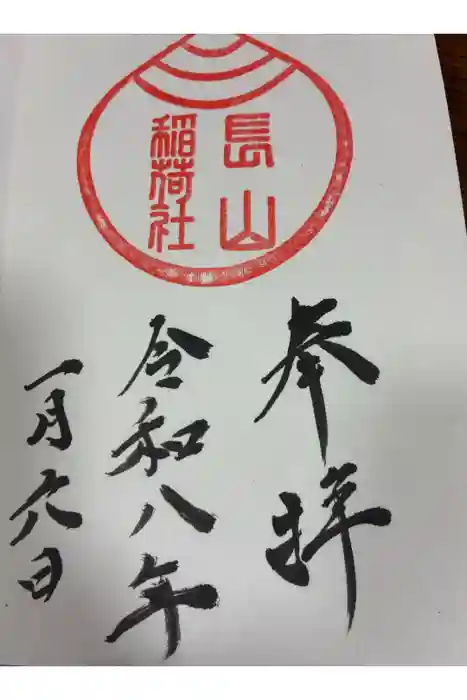 長山
稲荷社
奉拝
令和八年
一月六日